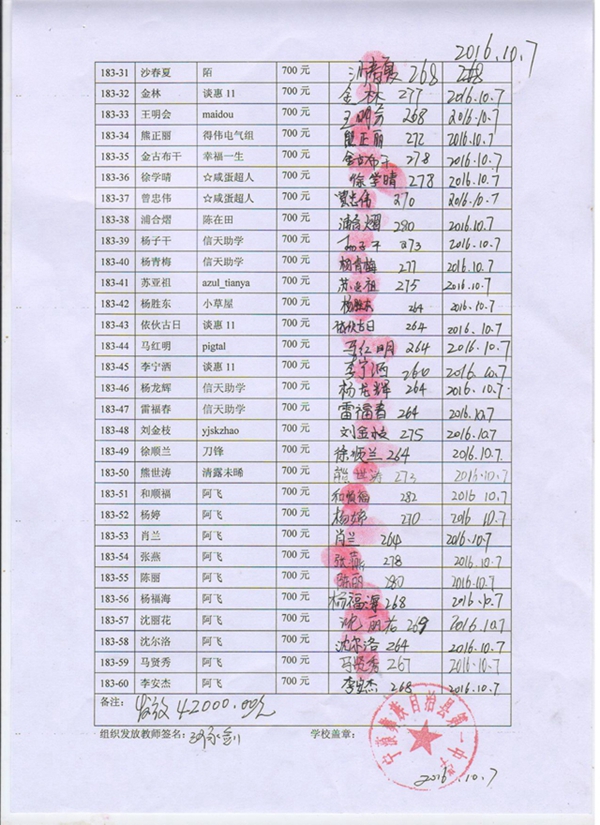 2016.10.7
183-31 沙春夏 陌 700 元 沙春夏 268
183-32 金林 谈惠 11 700 元 金林 277 2016.10.7
183-33 王明会 maidou 700 元 268 2016.10.7
183-34 熊正丽 得伟电气组 700 元 熊正丽 272 2016.10.7
183-35 金古布干 幸福一生 700 元 金古布干 278 2016.10.7
183-36 徐学晴 ☆咸蛋超人 700 元 徐学晴 278 2016.10.7
183-37 曾忠伟 ☆咸蛋超人 700 元 曾忠伟 270 2016.10.7
183-38 浦合熠 陈在田 700 元 浦合熠 280 2016.10.7
183-39 杨子干 信天助学 700 元 杨子干 273 2016.10.7
183-40 杨青梅 信天助学 700 元 杨青梅 277 2016.10.7
183-41 苏亚祖 azul_tianya 700 元 苏亚祖 275 2016.10.7
183-42 杨胜东 小草屋 700 元 杨胜东 264 2016.10.7
183-43 依伙古日 谈惠 11 700 元 依伙古日 264 2016.10.7
183-44 马红明 pigtal 700 元 马红明 264 2016.10.7
183-45 李宁酒 谈惠 11 700 元 李宁酒 260 2016.10.7
183-46 杨龙辉 信天助学 700 元 杨龙辉 264 2016.10.7
183-47 雷福春 信天助学 700 元 雷福春 264 2016.10.7
183-48 刘金枝 yjskzhao 700 元 刘金枝 275 2016.10.7
183-49 徐顺兰 刀锋 700 元 徐顺兰 264 2016.10.7
183-50 熊世涛 清露未晞 700 元 熊世涛 273 2016.10.7
183-51 和顺福 阿飞 700 元 和顺福 282 2016.10.7
183-52 杨婷 阿飞 700 元 杨婷 270 2016.10.7
183-53 肖兰 阿飞 700 元 肖兰 264 2016.10.7
183-54 张燕 阿飞 700 元 张燕 278 2016.10.7
183-55 陈丽 阿飞 700 元 陈丽 280 2016.10.7
183-56 杨福海 阿飞 700 元 杨福海 268 2016.10.7
183-57 沈丽花 阿飞 700 元 沈丽花 269 2016.10.7
183-58 沈尔洛 阿飞 700 元 沈尔洛 264 2016.10.7
183-59 马贤秀 阿飞 700 元 马贤秀 267 2016.10.7
183-60 李安杰 阿飞 700 元 李安杰 268 2016.10.7
备注: 发放 42000.00元
组织发放教师签名: 学校盖章:
宁蒗彝族自治县第一中学
2016.10.7